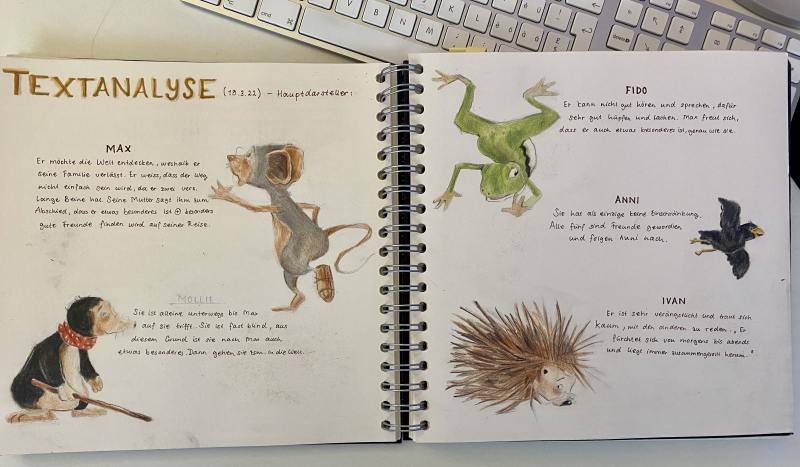 TEXTANALYSE (18.3.22) - Hauptdarsteller:
MAX
Er möchte die Welt entdecken, weshalb er
seine Familie verlässt. Er weiss, dass der Weg
nicht einfach sein wird, da er zwei vers.
lange Beine hat. Seine Mutter sagt ihm zum
Abschied, dass er etwas besonderes ist ⊕ besonders
gute Freunde finden wird auf seiner Reise.
MOLLIE
Sie ist alleine unterwegs bis Max
auf sie trifft. Sie ist fast blind, aus
diesem Grund ist sie nach Max auch
etwas besonderes. Dann gehen sie zsm. in die Welt.
FIDO
Er kann nicht gut hören und sprechen, dafür
sehr gut hüpfen und lachen. Max freut sich,
dass er auch etwas besonderes ist, genau wie sie.
ANNI
Sie hat als einzige keine Einschränkung.
Alle fünf sind Freunde geworden
und folgen Anni nach.
IVAN
Er ist sehr verängstlicht und traut sich
kaum, mit den anderen zu reden. "Er
fürchtet sich von morgens bis abends
und liegt immer zusammengerollt herum."
cmd
Y X C V B N M
delete